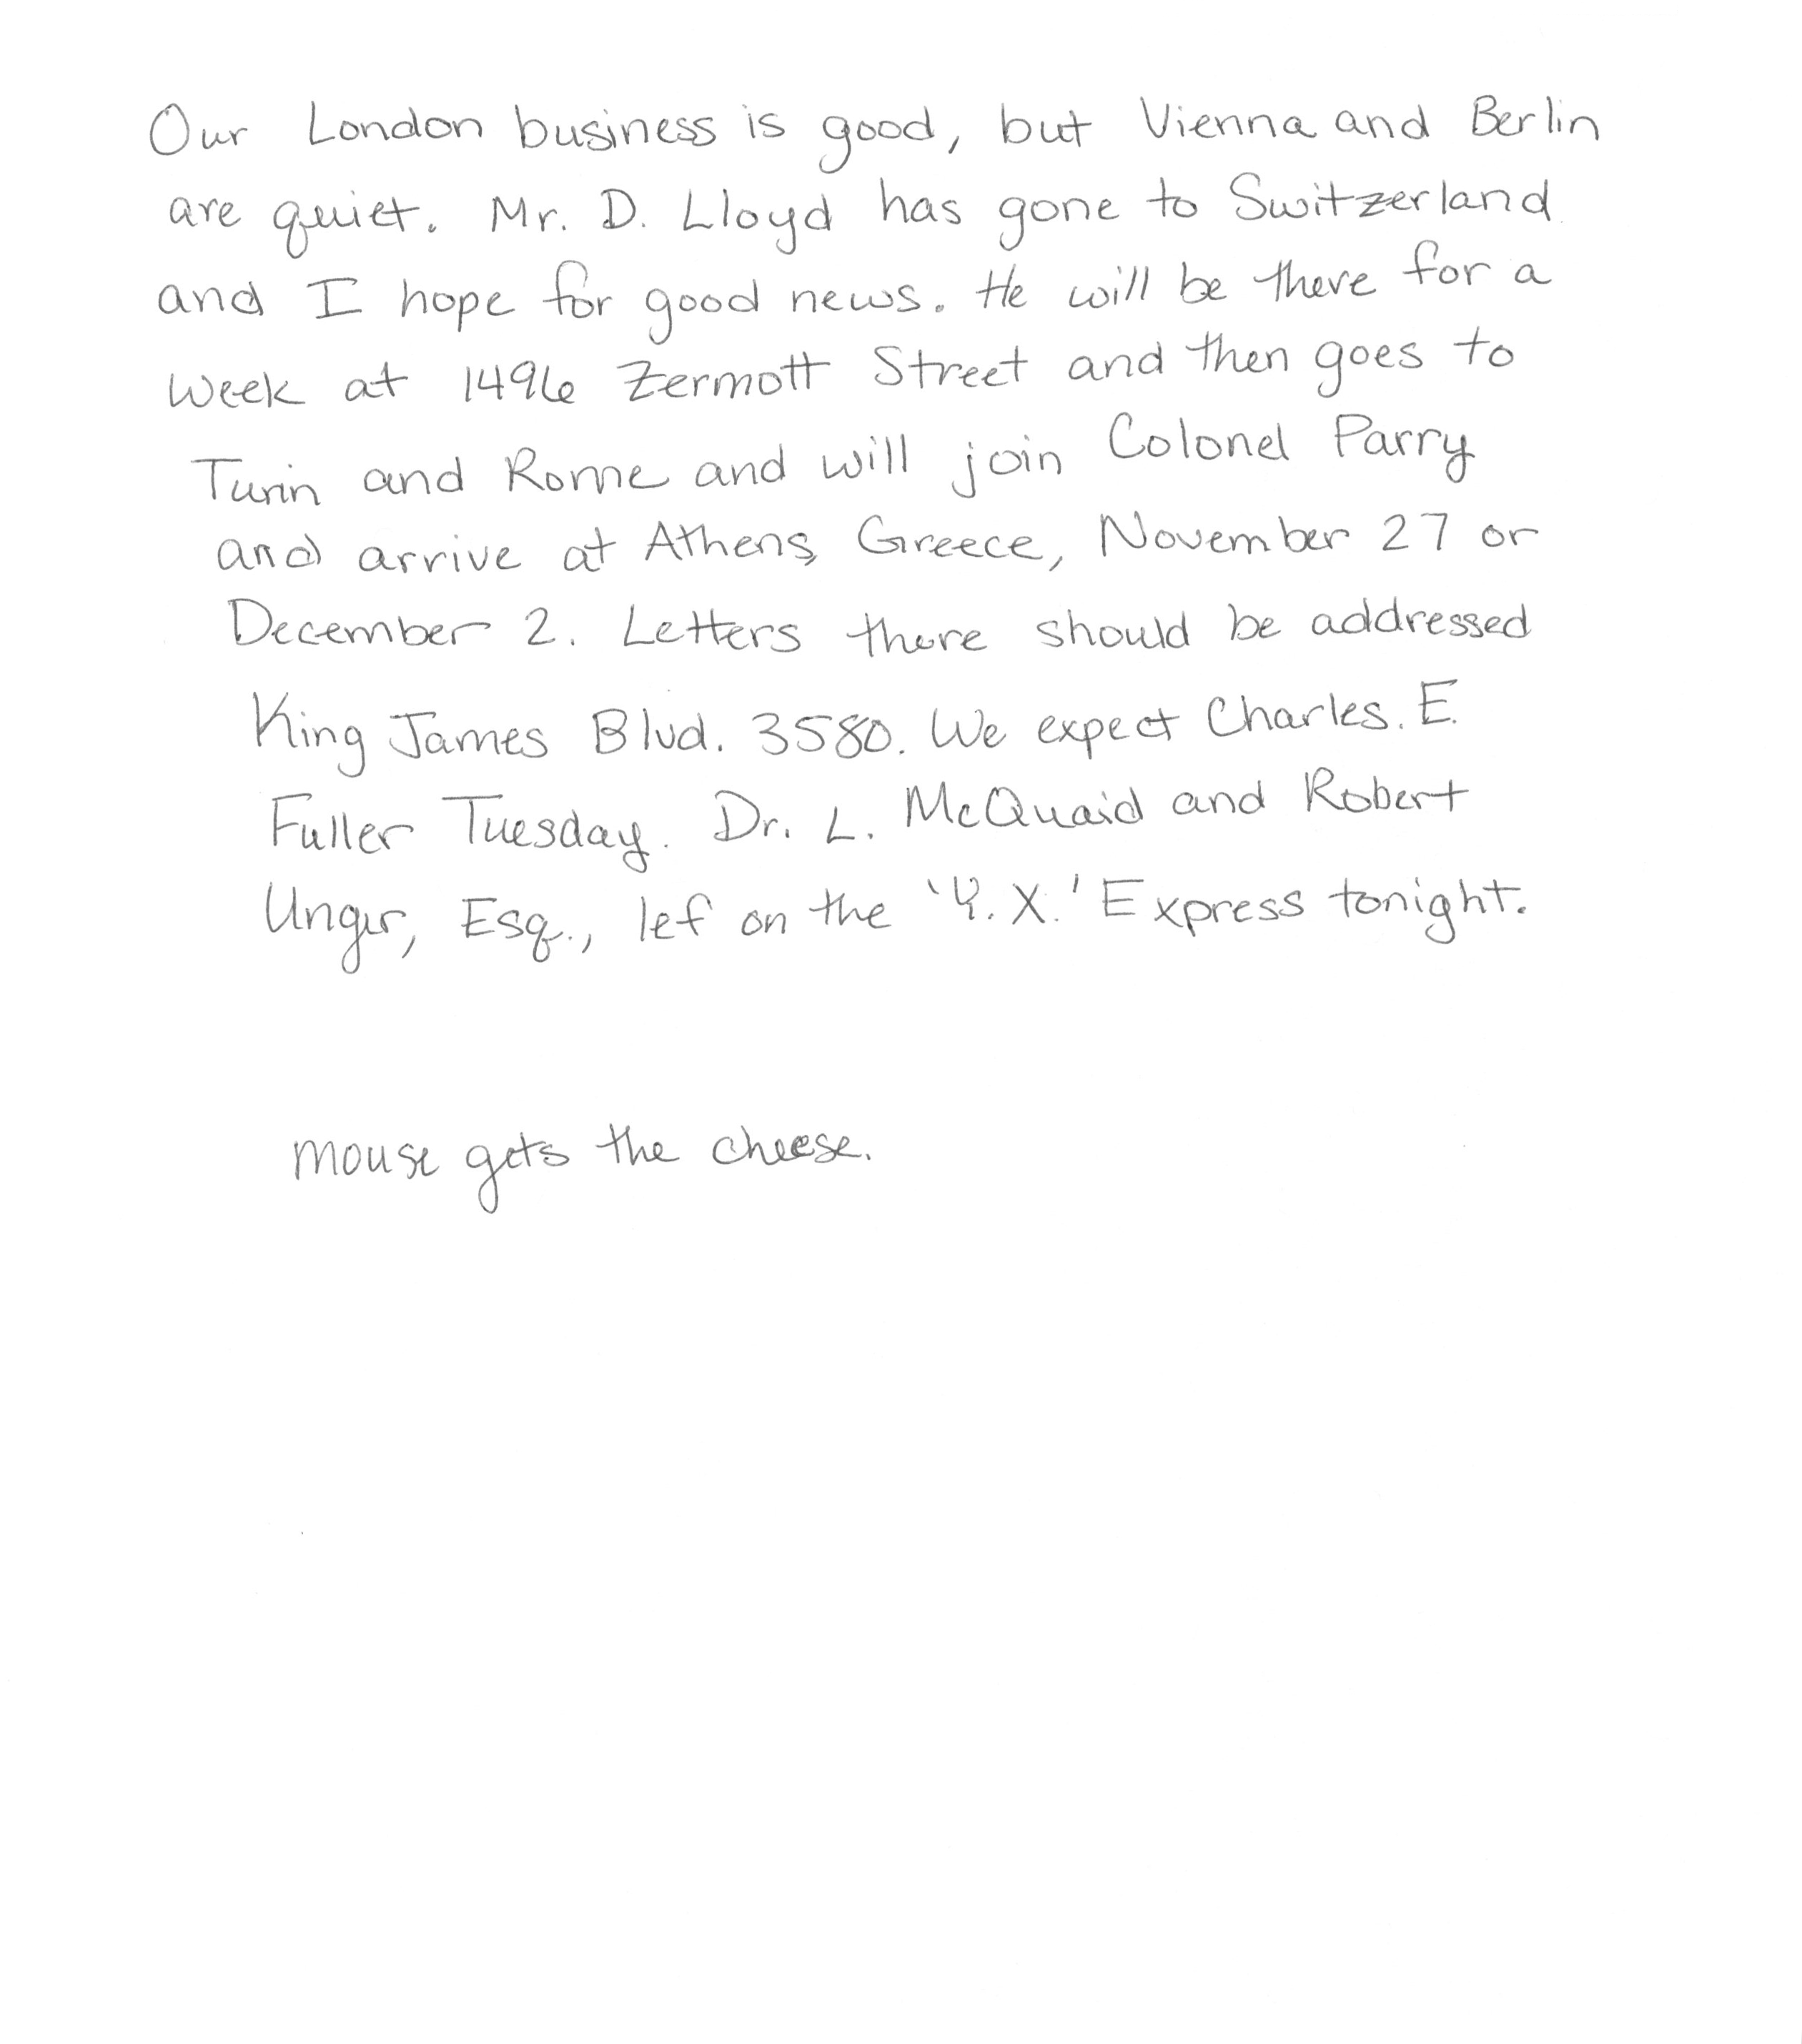 Our London business is good, but Vienna and Berlin
are quiet. Mr. D. Lloyd has gone to Switzerland
and I hope for good news. He will be there for a
week at 1496 Zermott Street and then goes to
Turin and Rome and will join Colonel Parry
and arrive at Athens, Greece, November 27 or
December 2. Letters there should be addressed
King James Blvd. 3580. We expect Charles. E.
Fuller Tuesday. Dr. L. McQuaid and Robert
Unger, Esq., lef on the 'Y. X.' Express tonight.
mouse gets the cheese.